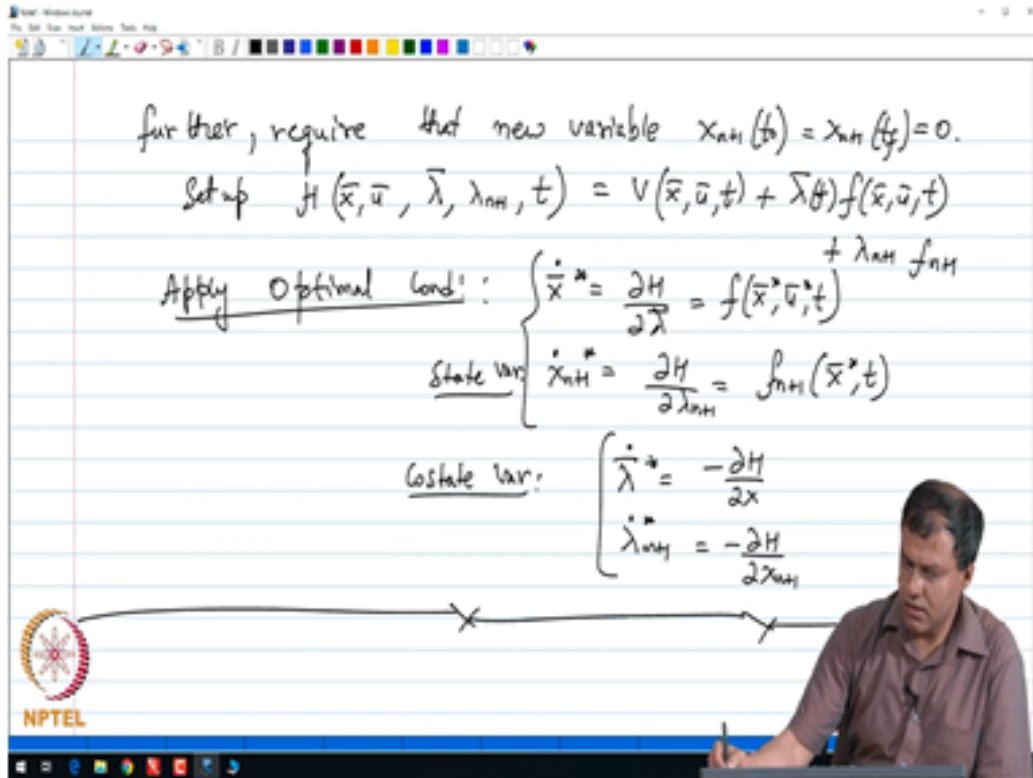 Note1 - Windows Journal
File Edit View Insert Actions Tools Help
B I
further, require that new variable x_{n+1}(t_0) = x_{n+1}(t_f) = 0.
Set up H(x̄, ū, λ̄, λ_{n+1}, t) = V(x̄, ū, t) + λ̄(t) f(x̄, ū, t)
+ λ_{n+1} f_{n+1}
Apply Optimal Cond: : ẋ̄* = ∂H/∂λ̄ = f(x̄*, ū*, t)
State Var: ẋ_{n+1}* = ∂H/∂λ_{n+1} = f_{n+1}(x̄*, t)
Costate Var: λ̄̇* = -∂H/∂x
λ̇*_{n+1} = -∂H/∂x_{n+1}
NPTEL